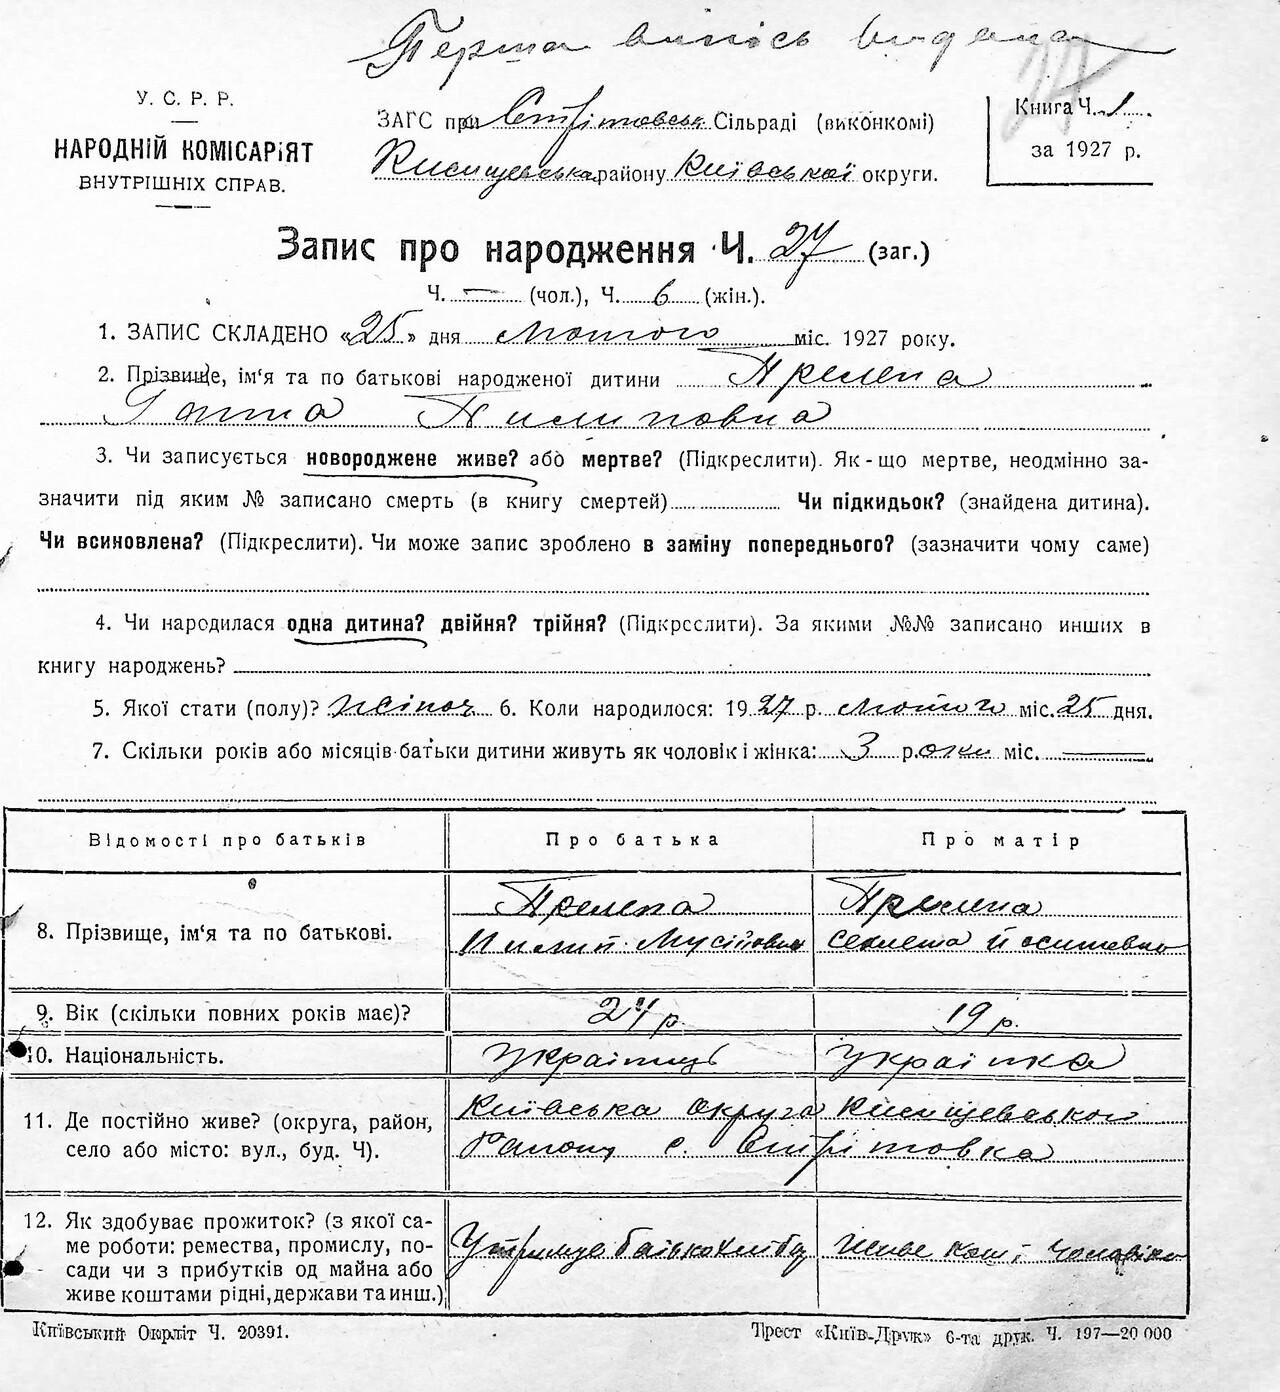 Перша випись видана
У. С. Р. Р.
НАРОДНІЙ КОМІСАРІЯТ
ВНУТРІШНІХ СПРАВ.
ЗАГС при Стрітовськ Сільраді (виконкомі)
району Київської округи.
Книга Ч. 1
за 1927 р.
27
Запис про народження Ч. 27 (заг.)
Ч. — (чол.), Ч. 6 (жін.).
1. ЗАПИС СКЛАДЕНО «25» дня лютого міс. 1927 року.
2. Прізвище, ім'я та по батькові народженої дитини Прелепа
Ганна Пилиповна
3. Чи записується новороджене живе? або мертве? (Підкреслити). Як-що мертве, неодмінно за-
значити під яким № записано смерть (в книгу смертей) Чи підкидьок? (знайдена дитина).
Чи всиновлена? (Підкреслити). Чи може запис зроблено в заміну попереднього? (зазначити чому саме)
4. Чи народилася одна дитина? двійня? трійня? (Підкреслити). За якими №№ записано инших в
книгу народжень?
5. Якої стати (полу)? жіноч 6. Коли народилося: 1927 р. лютого міс. 25 дня.
7. Скільки років або місяців батьки дитини живуть як чоловік і жінка: 3 роки міс. —
Відомості про батьків Про батька Про матір
8. Прізвище, ім'я та по батькові. Прелепа Пилип Мусійович Прелепа Секлета Йосиповна
9. Вік (скільки повних років має)? 24 р. 19 р.
10. Національність. Українець Українка
11. Де постійно живе? (округа, район, Київська округа
село або місто: вул., буд. Ч). Району с. Стрітовка
12. Як здобуває прожиток? (з якої са-
ме роботи: ремества, промислу, по-
сади чи з прибутків од майна або
живе коштами рідні, держави та инш.) живе кош. чоловіка
Київський Окрліт Ч. 20391.
Трест «Київ-Друк» 6-та друк. Ч. 197—20 000